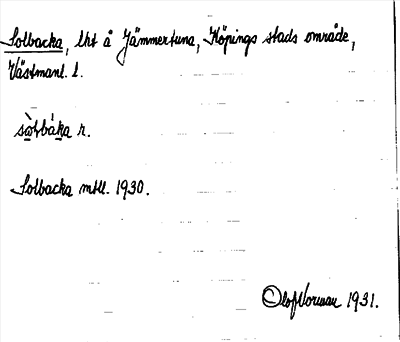 Solbacka, lht å Jämmertuna, Köpings stads område,
Västmanl. l.
sò̠lbáka̠ r.
Solbacka mtll. 1930.
Olof Norman 1931.